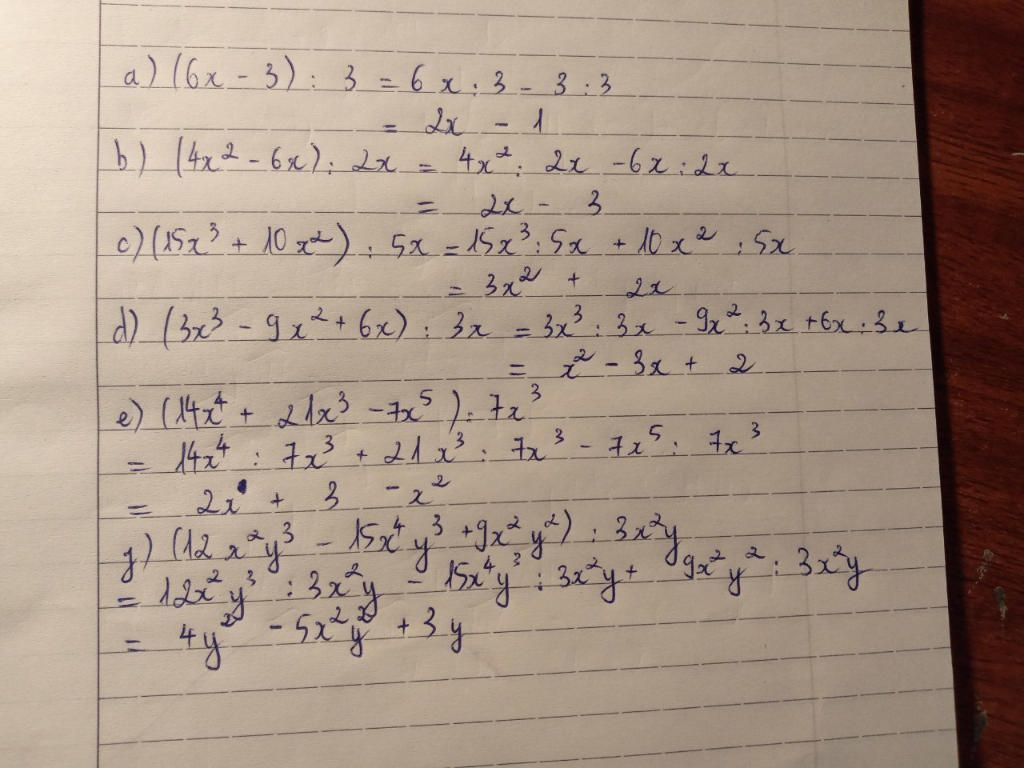 a) (6x - 3) : 3 = 6x : 3 - 3 : 3
= 2x - 1
b) (4x² - 6x) : 2x = 4x² : 2x - 6x : 2x
= 2x - 3
c) (15x³ + 10x²) : 5x = 15x³ : 5x + 10x² : 5x
= 3x² + 2x
d) (3x³ - 9x² + 6x) : 3x = 3x³ : 3x - 9x² : 3x + 6x : 3x
= x² - 3x + 2
e) (14x⁴ + 21x³ - 7x⁵) : 7x³
= 14x⁴ : 7x³ + 21x³ : 7x³ - 7x⁵ : 7x³
= 2x + 3 - x²
y) (12x²y³ - 15x⁴y³ + 9x²y²) : 3x²y
= 12x²y³ : 3x²y - 15x⁴y³ : 3x²y + 9x²y² : 3x²y
= 4y² - 5x²y² + 3y